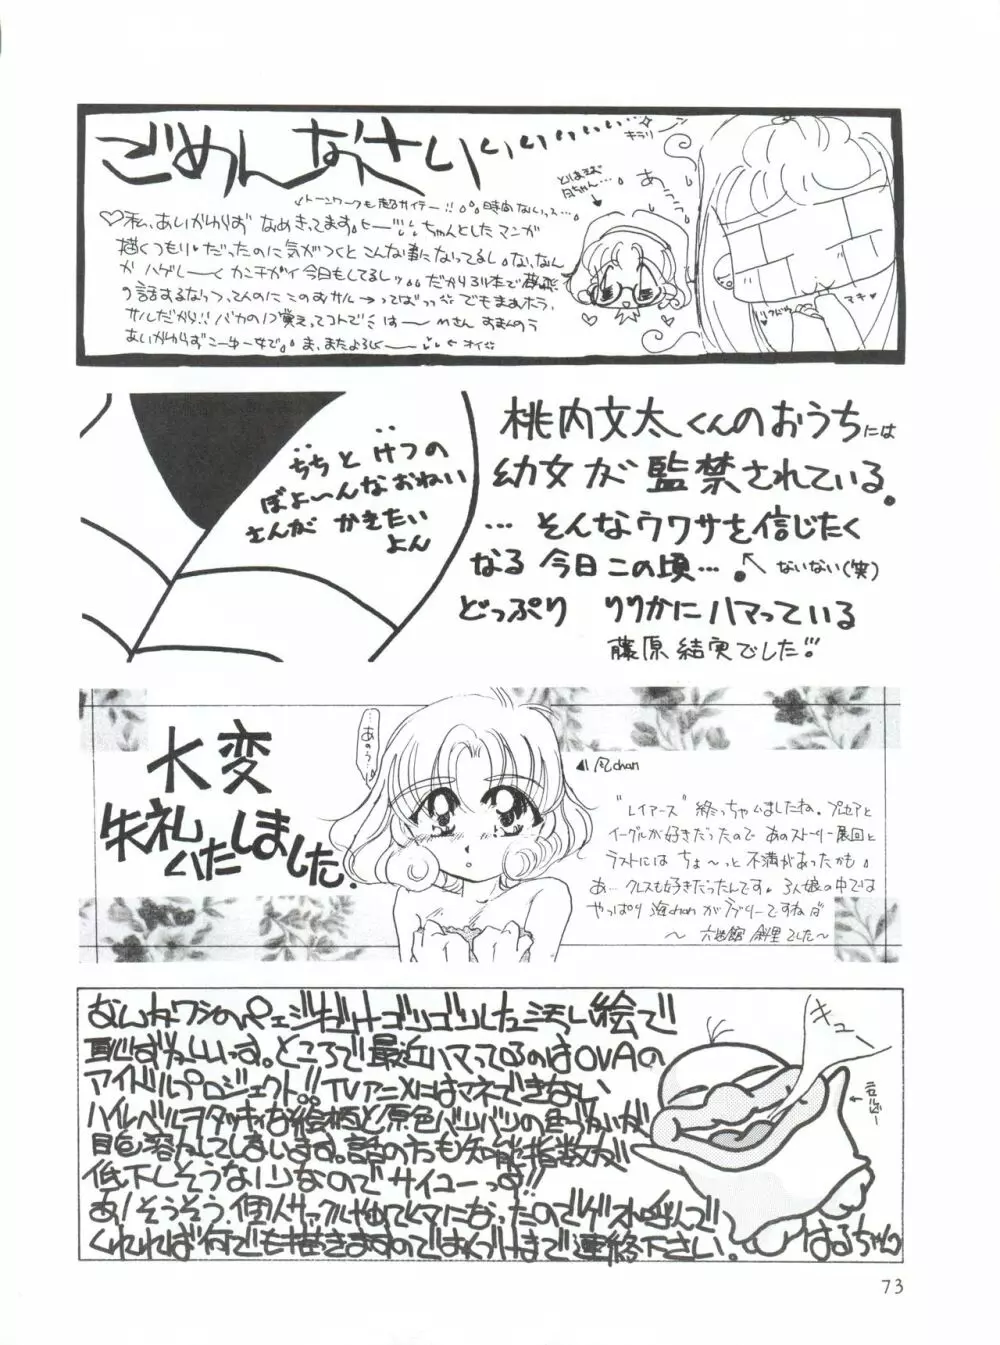 ごめんなさいぃぃぃぃ……
キラリ
とりあえず
あぅ
♡私、あいかわらず なめきってます。ちゃんとしたマンガ
描くつもりだったのに気がつくとこんな事になってるし。な、なんか
ハゲしーくカンチガイ今日もしてるしッ。
サルだから!!バカの1つ覚えってコトで
あいかわらずこーゆー女で。ま、またよろしくー ←オイ
マキ
ちちと けつの
ぼよ〜んなおねい
さんが かきたい
よん
桃内文太くんのおうちには
幼女が監禁されている。
…そんなウワサを信じたく
なる 今日この頃…。
↖ないない(笑)
どっぷり りりかにハマっている
藤原 結実でした!!
大変
失礼
いたしました。
…あのう
◀風chan
"レイアース" 終っちゃいましたね。プセアと
イーグルが好きだったので あのストーリー展開と
ラストには ちょ〜っと 不満があったかも。
あ… クレスも好きだったんです。3人娘の中では
やっぱり 海chan がラブリーですねぱ
〜 六堂館 斜里 でした〜
なんかワシのページだけゴツゴツした汚い絵で
恥ずかしいっす。ところで最近ハマってるのはOVAの
アイドルプロジェクト!! TVアニメにはマネできない
ハイレベルヲタッキィな絵柄と原色バリバリの色づかいが
目を溶かしてしまいます。話の方も知能指数が
低下しそうなノリなのでサイコーっす!!
あ!そうそう、個人サークルやめてヒマになったのでゲストに呼んで
くれれば何でも描きますのではるづけまで連絡下さい。
キュー
はるちゃん
73